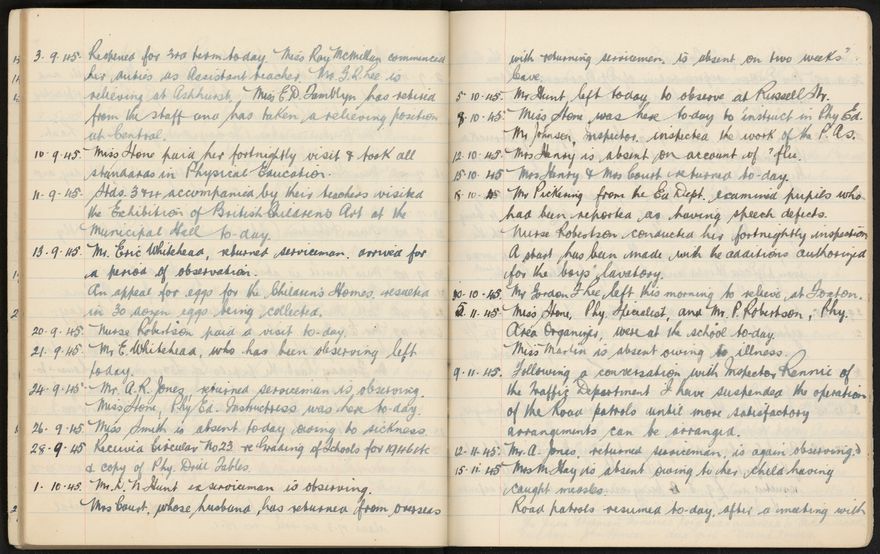 3.9.45. Reopened for 3rd term to-day. Miss Ray McMillan commenced
her duties as Assistant teacher. Mr. G. D. Lee is
relieving at Ashhurst. Miss E.D. Tamblyn has retired
from the staff and has taken a relieving position
at Central.
10.9.45. Miss Hone paid her fortnightly visit & took all
standards in Physical Education.
11.9.45. Stds. 3 & 4 accompanied by their teachers visited
the Exhibition of British Children's Art at the
Municipal Hall to-day.
13.9.45. Mr. Eric Whitehead, returned serviceman, arrived for
a period of observation.
An appeal for eggs for the Children's Homes, resulted
in 30 dozen eggs being collected.
20.9.45. Nurse Robertson paid a visit to-day.
21.9.45. Mr E. Whitehead, who has been observing left
today.
24.9.45. Mr. A.R. Jones, returned serviceman is observing.
Miss Hone, Phy Ed. Instructress was here to-day.
26.9.45 Miss Smith is absent today owing to sickness.
28.9.45 Received Circular No 23 re Grading of Schools for 1946 etc
& copy of Phy. Drill Tables.
1.10.45. Mr. Hunt ex serviceman is observing.
Mrs Court, whose husband, has returned from overseas
with returning servicemen, is absent on two weeks"
leave.
5.10.45. Mr. Hunt left today to observe at Russell St.
8.10.45 Miss Hone, was here to-day to instruct in Phy Ed.
Mr Johnson, Inspector, inspected the work of the P.A's.
12.10.45. Mrs Henry is absent on account of "flu.
15.10.45 Mrs Henry & Mrs Court returned to-day.
18.10.45 Mr Pickering from the Ed Dept. examined pupils who
had been reported as having speech defects.
Nurse Robertson conducted her fortnightly inspection
A start has been made with the additions authorized
for the boys' lavatory.
30.10.45. Mr Gordon Lee left this morning to relieve at Foxton.
5.11.45. Miss Hone, Phy. Specialist, and Mr. P. Robertson, Phy.
Area Organiser, were at the school to-day.
Miss Martin is absent owing to illness.
9.11.45. Following a conversation with Inspector Rennie of
the Traffic Department I have suspended the operation
of the Road patrols until more satisfactory
arrangements can be arranged.
12.11.45. Mr. A. Jones, returned serviceman, is again observing.
15.11.45 Mrs M. Hay is absent owing to her child having
caught measles.
Road patrols resumed to-day, after a meeting with